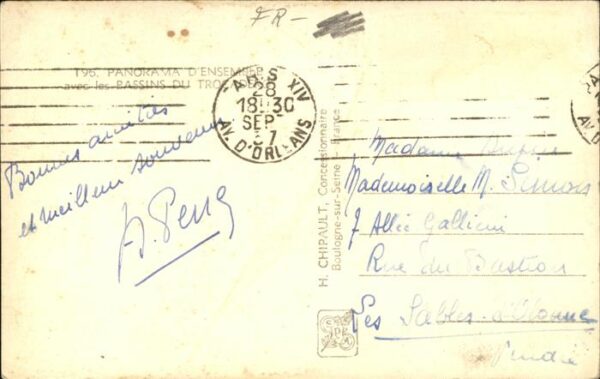 FR-
196. PANORAMA D'ENSEMBLE
avec les BASSINS DU
PARIS XIV
28
18H30
SEPT
37
AV. D'ORLEANS
Bonnes amitiés
et meilleurs souvenirs
H. CHIPAULT, Concessionnaire
Boulogne-sur-Seine - France
Madame
Mademoiselle M. Simon
7 Allée Gallieni
Rue du Bastion
Les Sables-d'Olonne